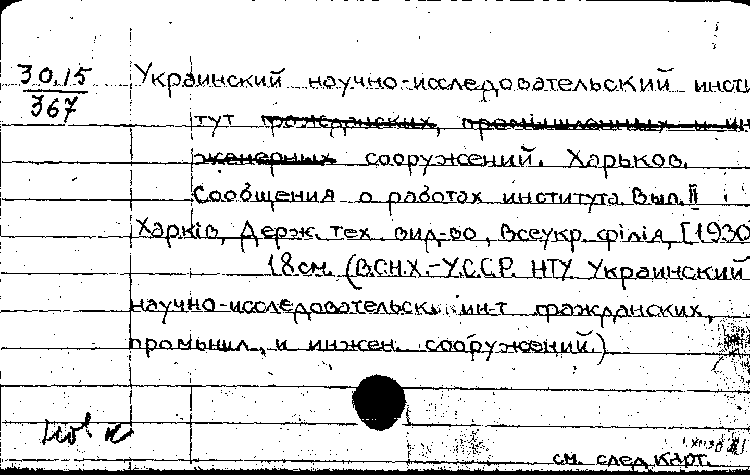 30.15
367
Украинский научно-исследовательский инсти
тут гражданских, промышленных и ин
женерных сооружений. Харьков.
Сообщения о работах института. Вып. II
Харкiв, Держ. тех. вид-во, Всеукр. фiлiя, [1930
18 см. (В.С.Н.Х.-У.С.С.Р. НТУ Украинский
научно-исследовательск ин-т гражданских,
промышл., и инжен. сооружений.)
см. след. карт.